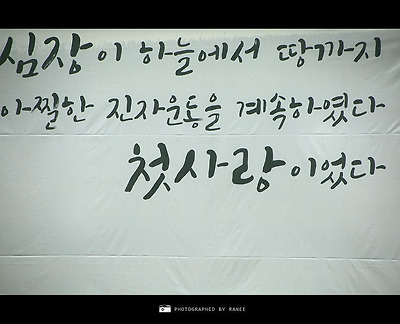 심장이 하늘에서 땅까지
아찔한 진자운동을 계속하였다
첫사랑이었다
PHOTOGRAPHED BY RANEE